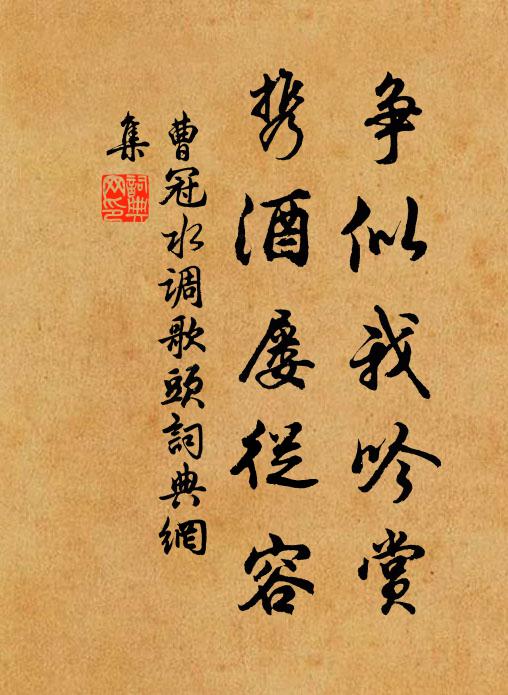 争似我吟赏
携酒屡從容
曹冠水调歌頭詞典網
集
詞典
网印